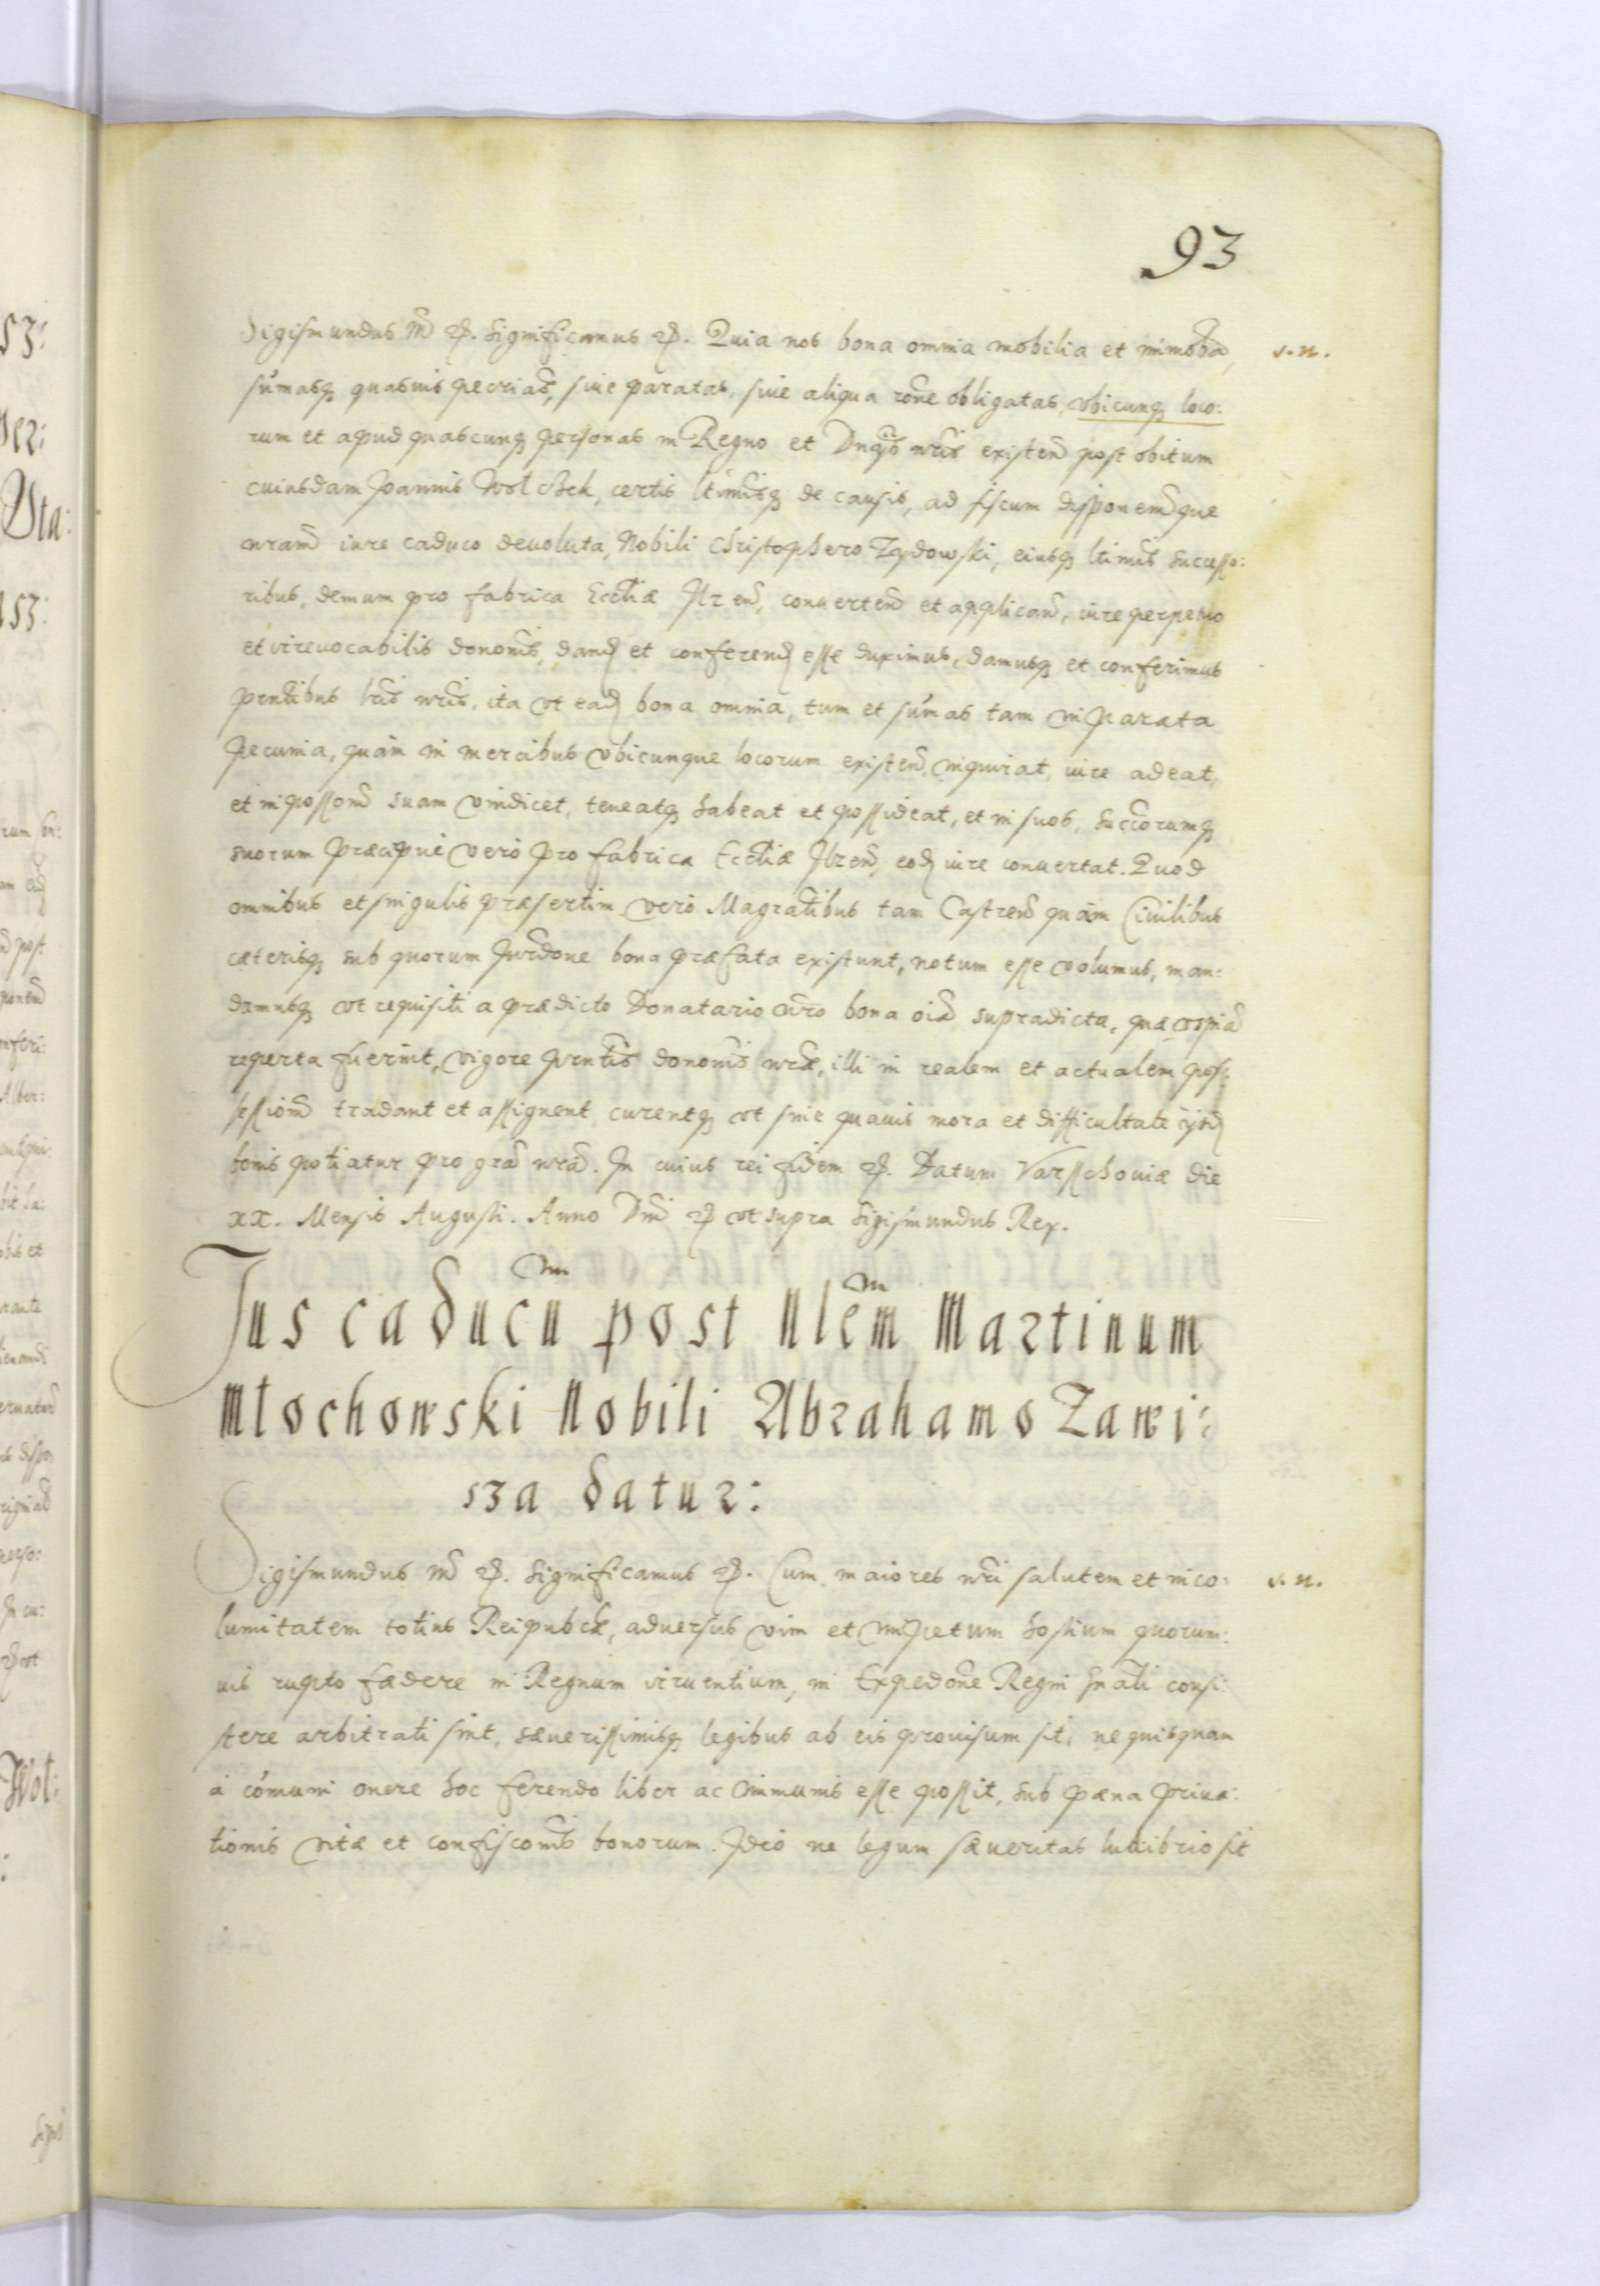 93
Sigismundus 3us etc. Significamus etc. Quia nos bona omnia mobilia et immoba, v. n.
summasq quasuis pecrias, siue paratas, siue aliqua rone obligatas, vbicunq loco:
rum et apud quascunq personas in Regno et Dnys nris existen post obitum
cuiusdam Joannis Wolchek, certis ltimisq de causis, ad fiscum disponemque
nram iure caduco deuoluta, Nobili Christophero Zydowski, eiusq ltimis successo:
ribus, demum pro fabrica Eccliæ Ilzen, conuerten et applican, iure perpetuo
et irreuocabilis dononis, dand et conferend esse duximus, damusq et conferimus
prntibus lris nris, ita vt ead bona omnia, tum et summas tam in parata
pecunia, quam in mercibus vbicunque locorum existen, inquirat, iure adeat,
et in possom suam vindicet, teneatq habeat et possideat, et in suos, succorumq
suorum præcipue vero pro fabrica Eccliæ Ilzen, eod iure conuertat. Quod
omnibus et singulis præsertim vero Magratibus tam Castren quam Ciuilibus
cæterisq sub quorum Jurdone bona præfata existunt, notum esse volumus, man:
damusq vt requisiti a prædicto Donatario nro bona oia supradicta, quæ vspia
reperta fuerint, vigore prntis dononis nræ, illi in realem et actualem pos:
sessiom tradant et assignent, curentq vt sine quauis mora et difficultate ijsd
bonis potiatur pro gra nra. In cuius rei fidem etc. Datum Varschouiæ die
XX. Mensis Augusti. Anno Dni etc vt supra Sigismundus Rex.
Jus caducu post Nlem Martinum
Mlochowski Nobili Abrahamo Zawi:
sza datur:
Sigismundus 3us etc. Significamus etc. Cum maiores nri salutem et inco: v. n.
lumitatem totius Reipubcæ, aduersus vim et impetum hostium quorum:
uis rupto fædere in Regnum irruentium, in Expedone Regni gnali consi:
stere arbitrati sint, sæuerissimisq legibus ab eis prouisum sit, ne quisquam
a comuni onere hoc ferendo liber ac immunis esse possit, sub pæna priua:
tionis vitæ et confisconis bonorum. Ideo ne legum sæueritas ludibrio sit